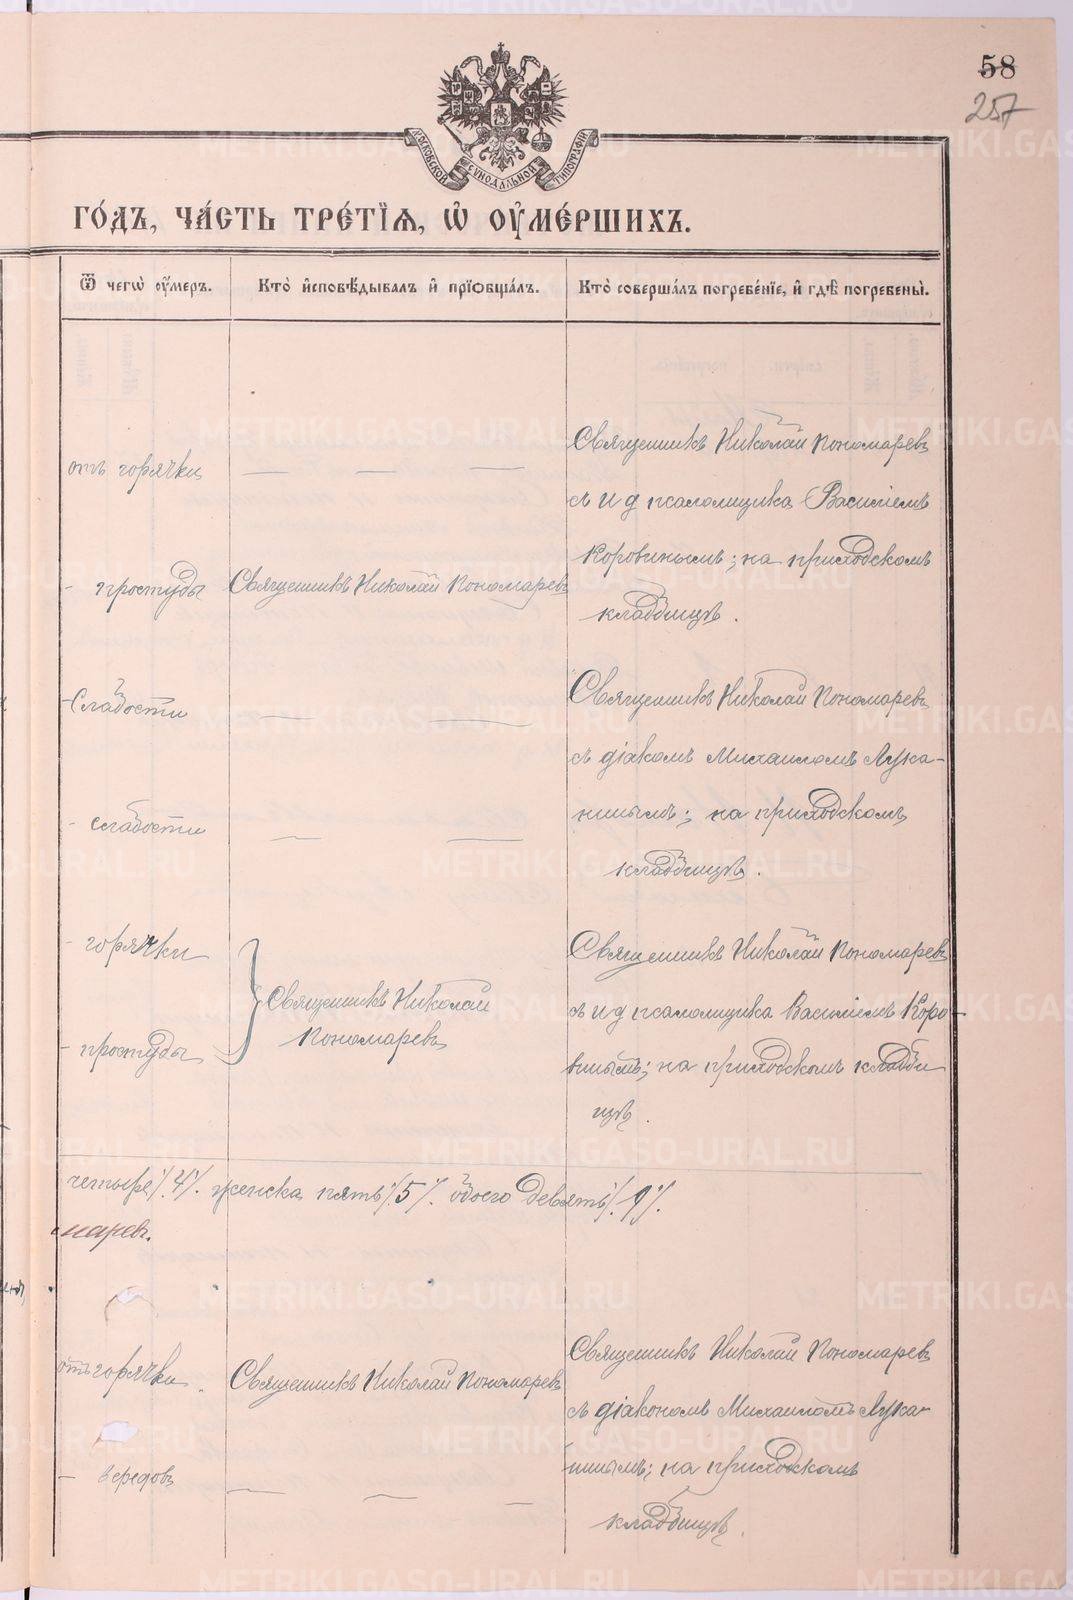 58
257
МОСКОВСКОЙ СѴНОДАЛЬНОЙ ТИПОГРАФІИ
ГО́ДЪ, ЧА́СТЬ ТРЕ́ТІѦ, Ѡ҆ ОУ҆МЕ́РШИХЪ.
Ѿ чегѡ̀ оу҆́меръ.
Кто̀ и҆сповѣ́дывалъ и҆ прїѡбща́лъ.
Кто̀ соверша́лъ погребе́нїе, и҆ гдѣ̀ погребены̀.
отъ горячки
Священникъ Николай Пономаревъ
съ и д псаломщика Василіемъ
Коровинымъ; на приходскомъ
кладбищѣ.
- простуды
Священникъ Николай Пономаревъ
- Слабости
Священникъ Николай Пономаревъ
съ діакомъ Михаиломъ Лука-
нинымъ; на приходскомъ
кладбищѣ.
- слабости
- горячки
- простуды
Священникъ Николай
Пономаревъ
Священникъ Николай Пономаревъ
съ и д псаломщика Василіемъ Коро-
винымъ; на приходскомъ кладби
щѣ.
четыре /.4/. женска пять /.5/. обоего девять /.9/.
маревъ.
отъ горячки
Священникъ Николай Пономаревъ
Священникъ Николай Пономаревъ
съ діакономъ Михаиломъ Лука-
нинымъ; на приходскомъ
кладбищѣ.
- вередовъ
METRIKI.GASO-URAL.RU